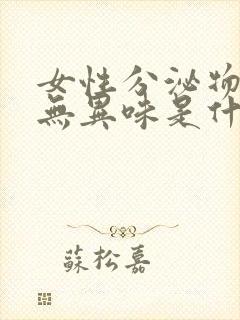 女性分泌物
無異味是什
蘇松嘉